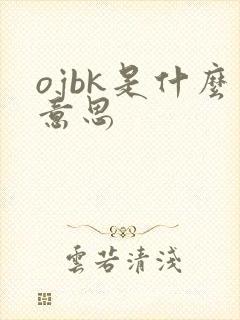 ojbk是什麼
意思
雲若清淺